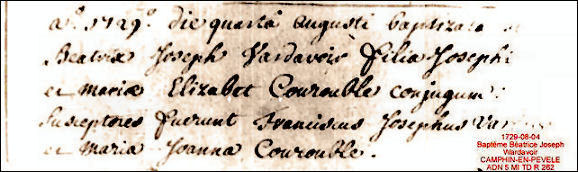 a.º 1729.º die quarta Augusti baptizata
Beatrix Joseph Vardavoir filia Josephi
et mariæ Elizabet Courouble conjugum:
susceptores fuerunt Franciscus Josephus Var
et maria Joanna Courouble.
1729-08-04
Baptême Béatrice Joseph
Vardavoir
CAMPHIN-EN-PEVELE
ADN 5 MI TD R 262